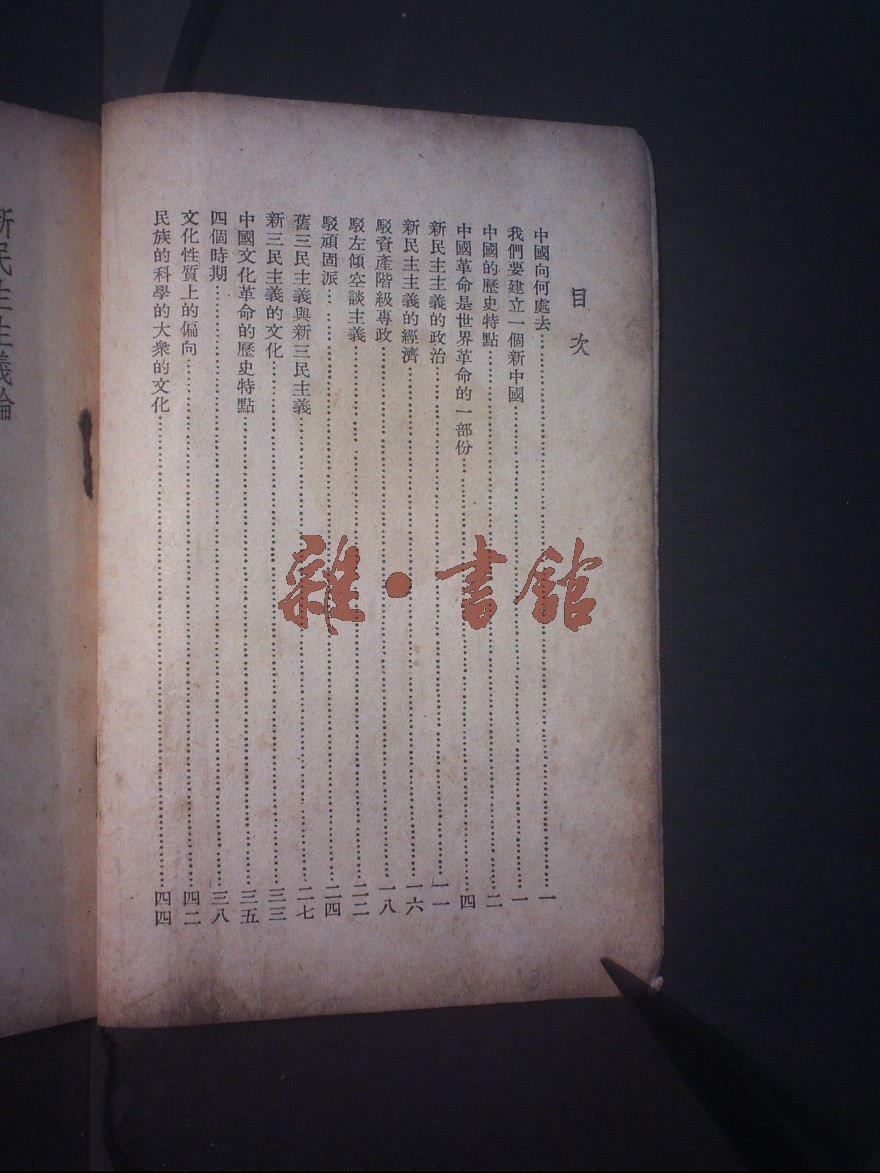 目次
中國向何處去……一
我們要建立一個新中國……一
中國的歷史特點……二
中國革命是世界革命的一部份……四
新民主主義的政治……一一
新民主主義的經濟……一六
駁資產階級專政……一八
駁左傾空談主義……二二
駁頑固派……二四
舊三民主義與新三民主義……二七
新三民主義的文化……三三
中國文化革命的歷史特點……三五
四個時期……三八
文化性質上的偏向……四二
民族的科學的大衆的文化……四四
新民主主義論
雜·書館